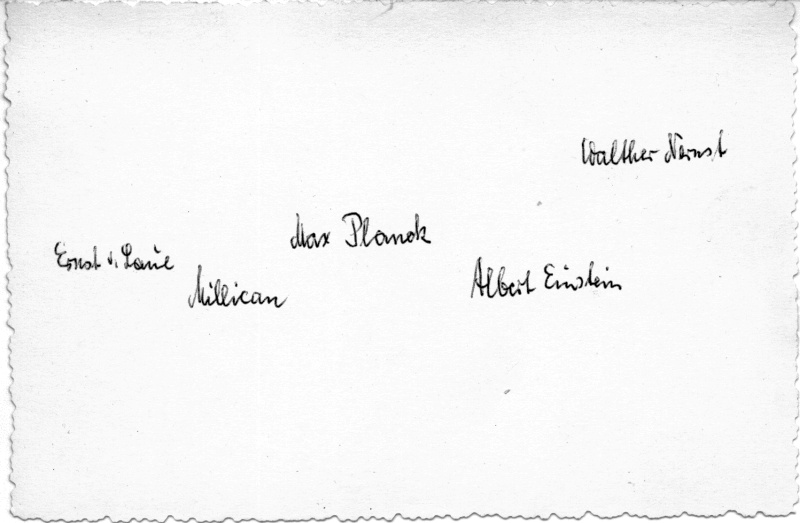 Walther Nernst
Max Planck
Ernst v. Laue
Millican
Albert Einstein